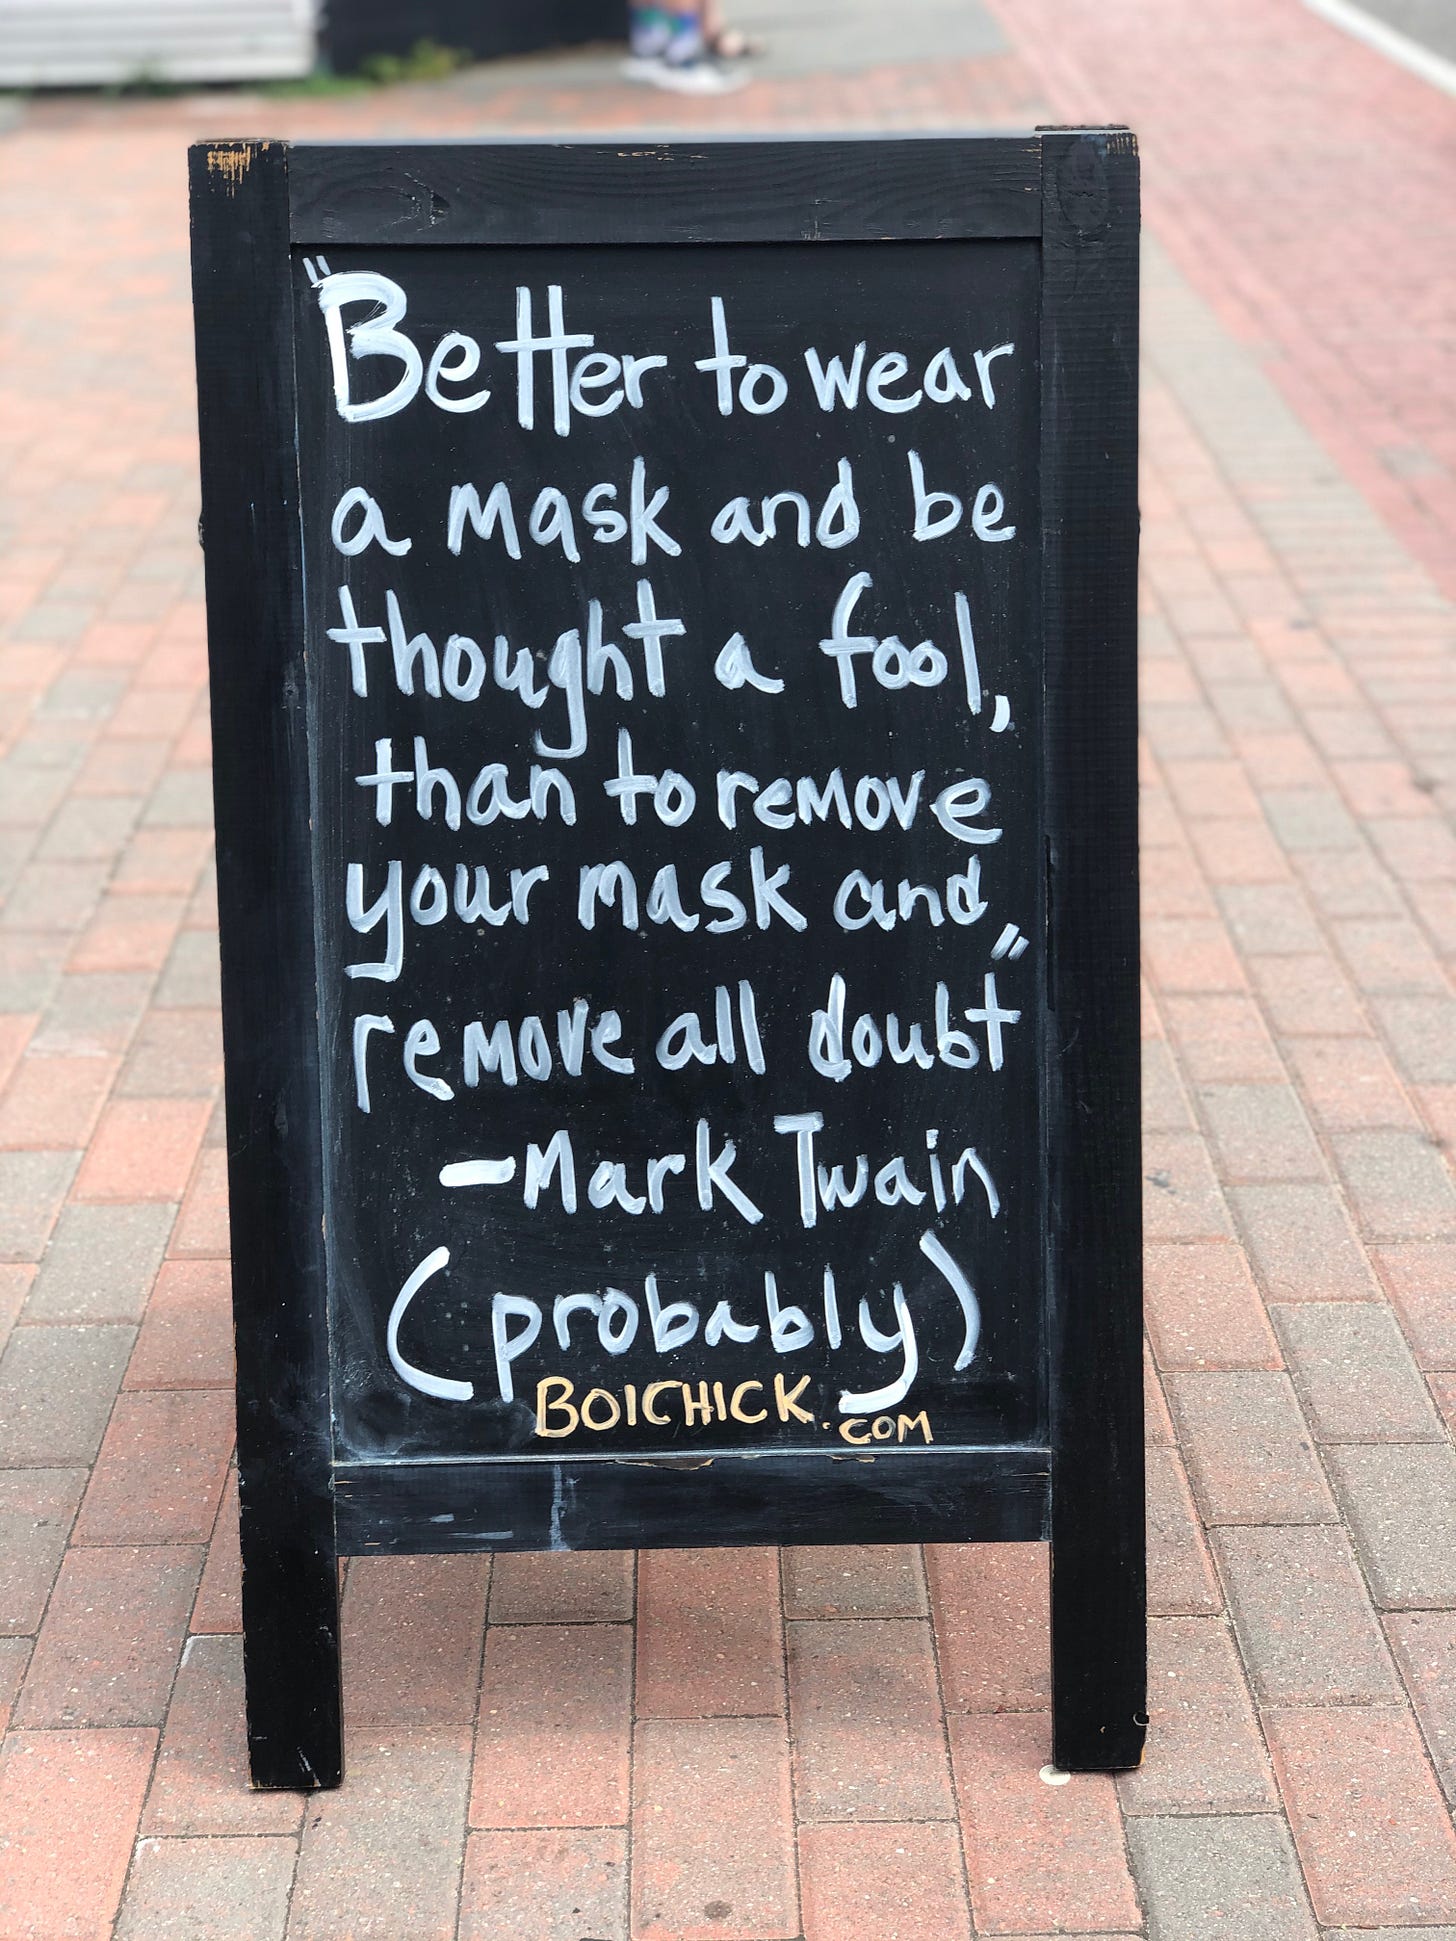 "Better to wear
a mask and be
thought a fool,
than to remove
your mask and
remove all doubt"
-Mark Twain
(probably)
BOICHICK.COM